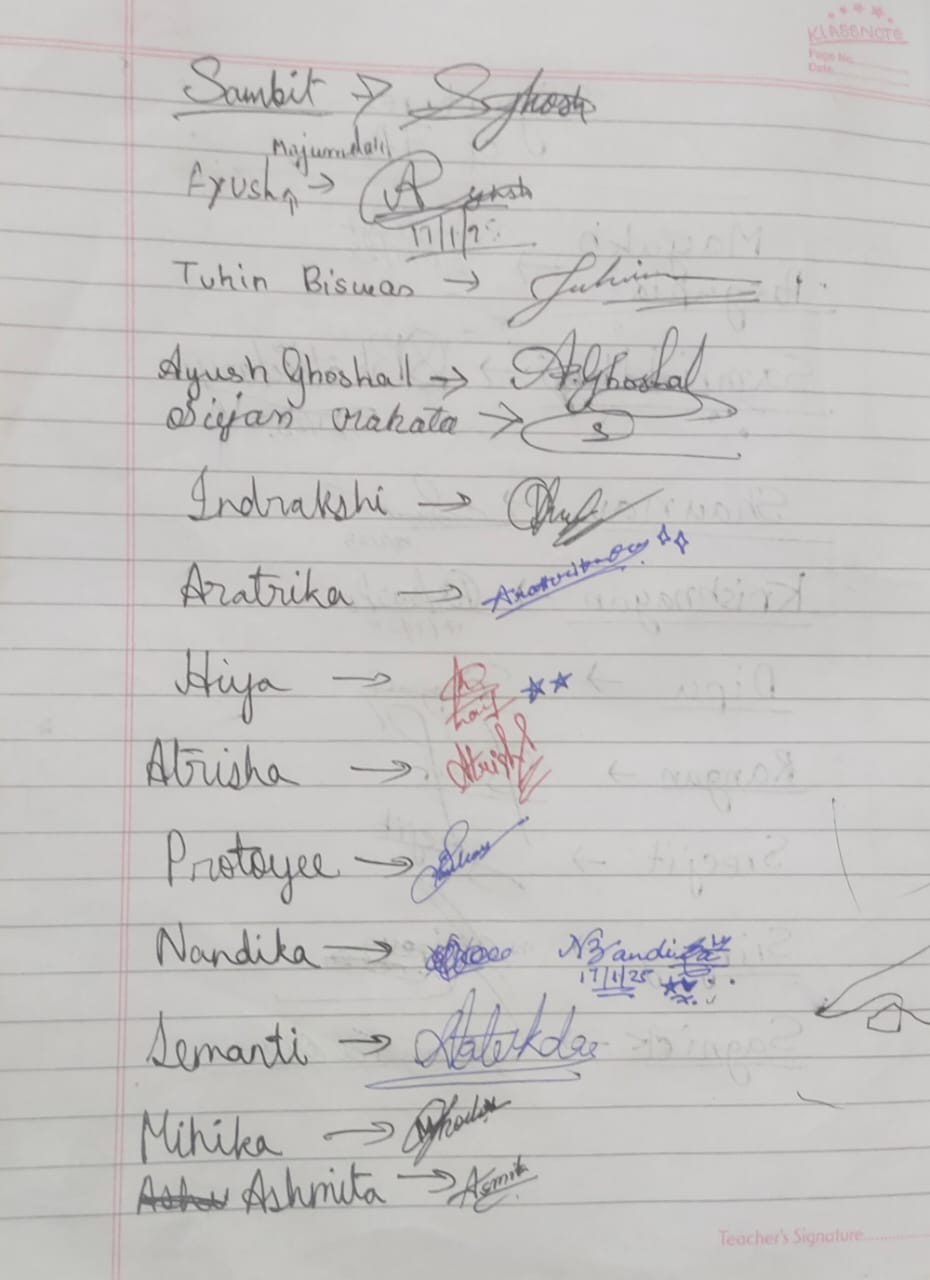 KLASSNOTE
Page No.
Date
Sambit → Sghosh
Majumdar
Ayush → Ayush
17/1/2
Tuhin Biswas → Tuhin
Ayush Ghoshal → A.Ghoshal
Sirjan Mahata → S
Indrakshi →
Aratrika → Aratrika
Hiya →
Atrisha → Atrisha
Protoyee →
Nandika → Nandika
17/1/25
Semanti →
Mihika →
Ashmita → Asmit
Teacher's Signature